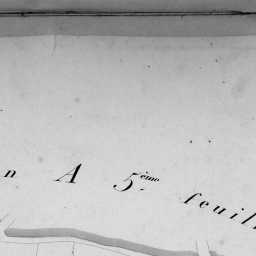 n A 5ème feuill